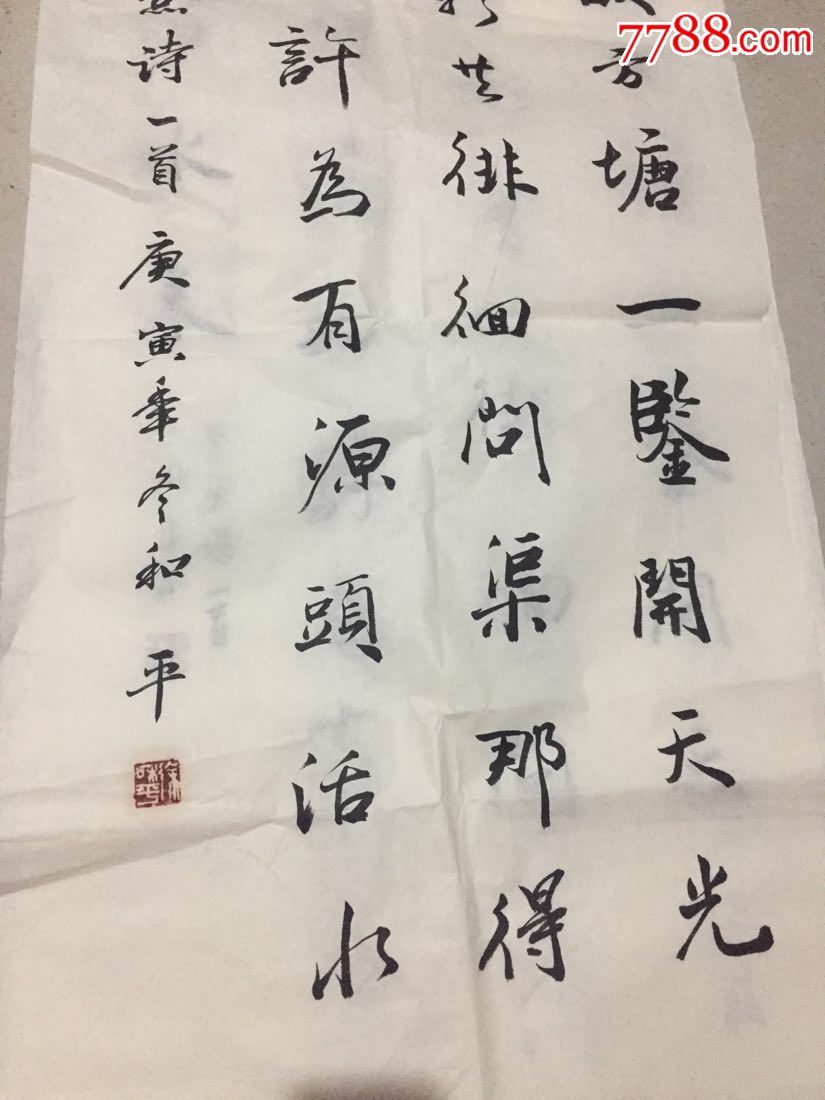 7788.com
方塘一鑒開天光
共徘徊問渠那得
許為有源頭活水
詩一首庚寅年冬和平